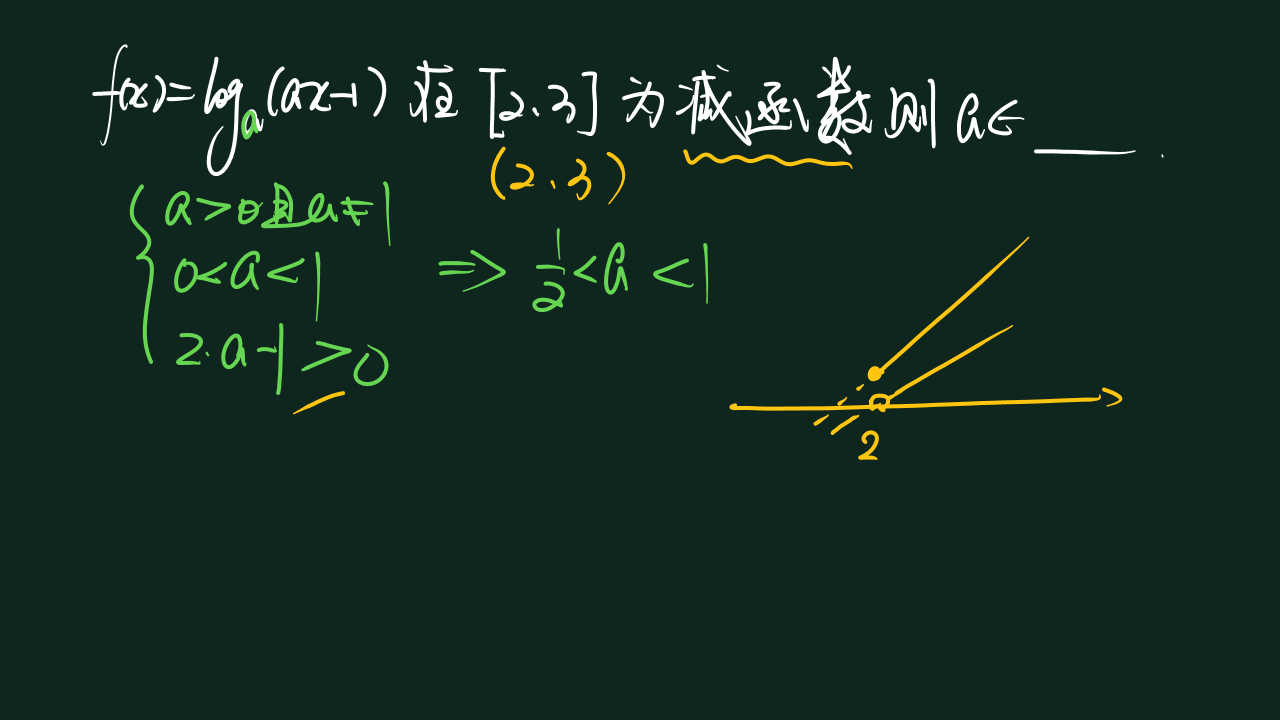 f(x)=log_a(ax-1) 在 [2,3] 为减函数则 a∈____.
(2,3)
{ a>0且a≠1
0<a<1 ⇒ 1/2<a<1
2·a-1>0
2